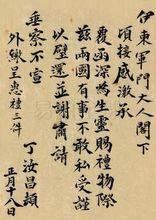 伊東軍門大人閣下
頃接
覆函深為生靈感激承
賜禮物際
茲兩國有事不敢私受謹
以璧還並謝肅請
垂察不宣
外繳呈惠禮三件
丁汝昌頓
正月十八日